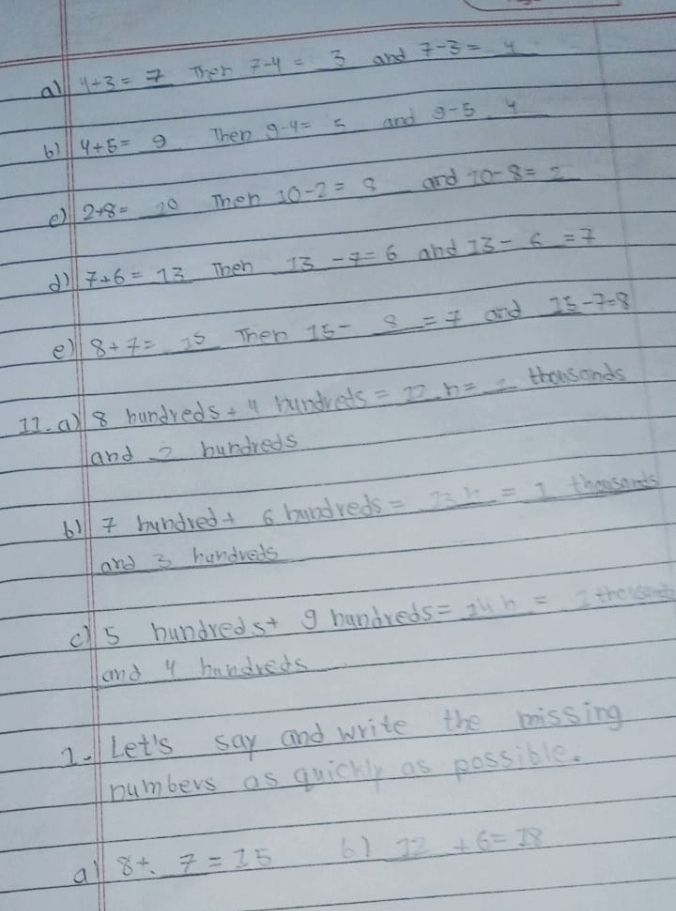 a) 4+3= 7 Then 7-4= 3 and 7-3= 4
b) 4+5= 9 Then 9-4= 5 and 9-5 4
c) 2+8= 10 Then 10-2= 8 and 10-8= 2
d) 7+6= 13 Then 13 -7=6 and 13- 6 =7
e) 8+7= 15 Then 15- 8 =7 and 15-7=8
11. a) 8 hundreds+ 4 hundreds= 12 h= 1 thousands
and 2 hundreds
b) 7 hundred+ 6 hundreds= 13 h = 1 thousands
and 3 hundreds
c) 5 hundreds+ 9 hundreds= 14 h = 1 thousands
and 4 hundreds
1. Let's say and write the missing
numbers as quickly as possible.
a) 8+. 7 = 15 b) 12 +6=18